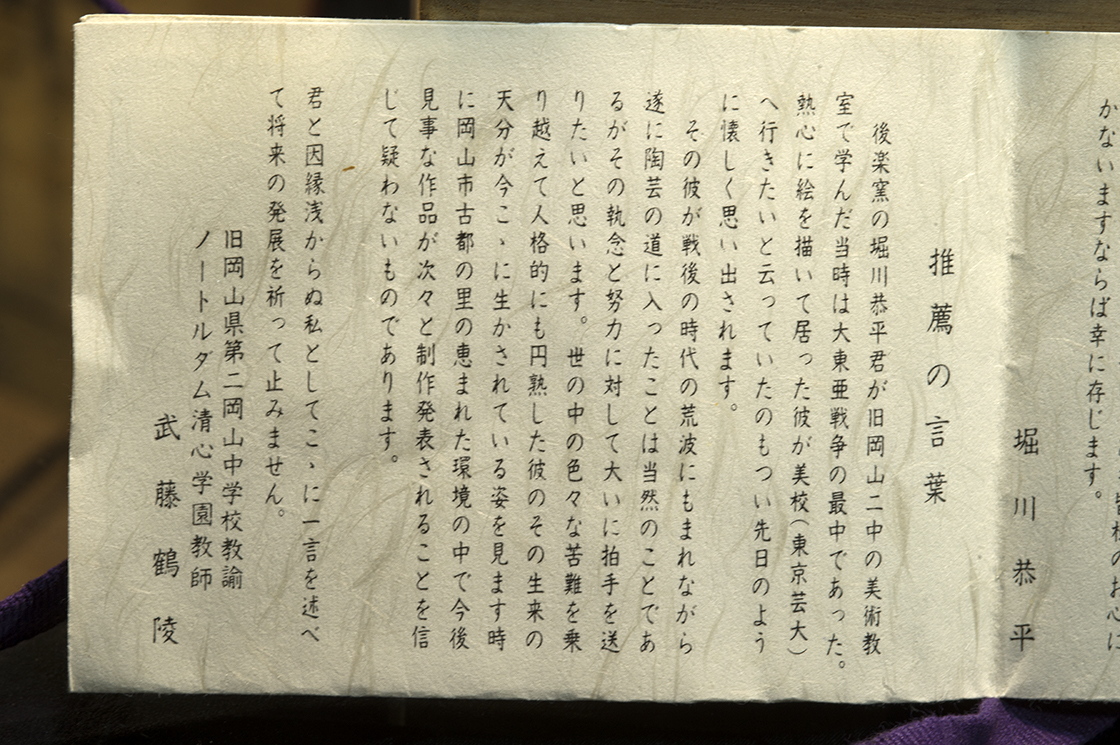 かないますならば幸に存じます。
堀川恭平
推薦の言葉
後楽窯の堀川恭平君が旧岡山二中の美術教
室で学んだ当時は大東亜戦争の最中であった。
熱心に絵を描いて居った彼が美校(東京芸大)
へ行きたいと云っていたのもつい先日のよう
に懐しく思い出されます。
その彼が戦後の時代の荒波にもまれながら
遂に陶芸の道に入ったことは当然のことであ
るがその執念と努力に対して大いに拍手を送
りたいと思います。世の中の色々な苦難を乗
り越えて人格的にも円熟した彼のその生来の
天分が今こゝに生かされている姿を見ます時
に岡山市古都の里の恵まれた環境の中で今後
見事な作品が次々と制作発表されることを信
じて疑わないものであります。
君と因縁浅からぬ私としてこゝに一言を述べ
て将来の発展を祈って止みません。
旧岡山県第二岡山中学校教諭
ノートルダム清心学園教師
武藤鶴陵